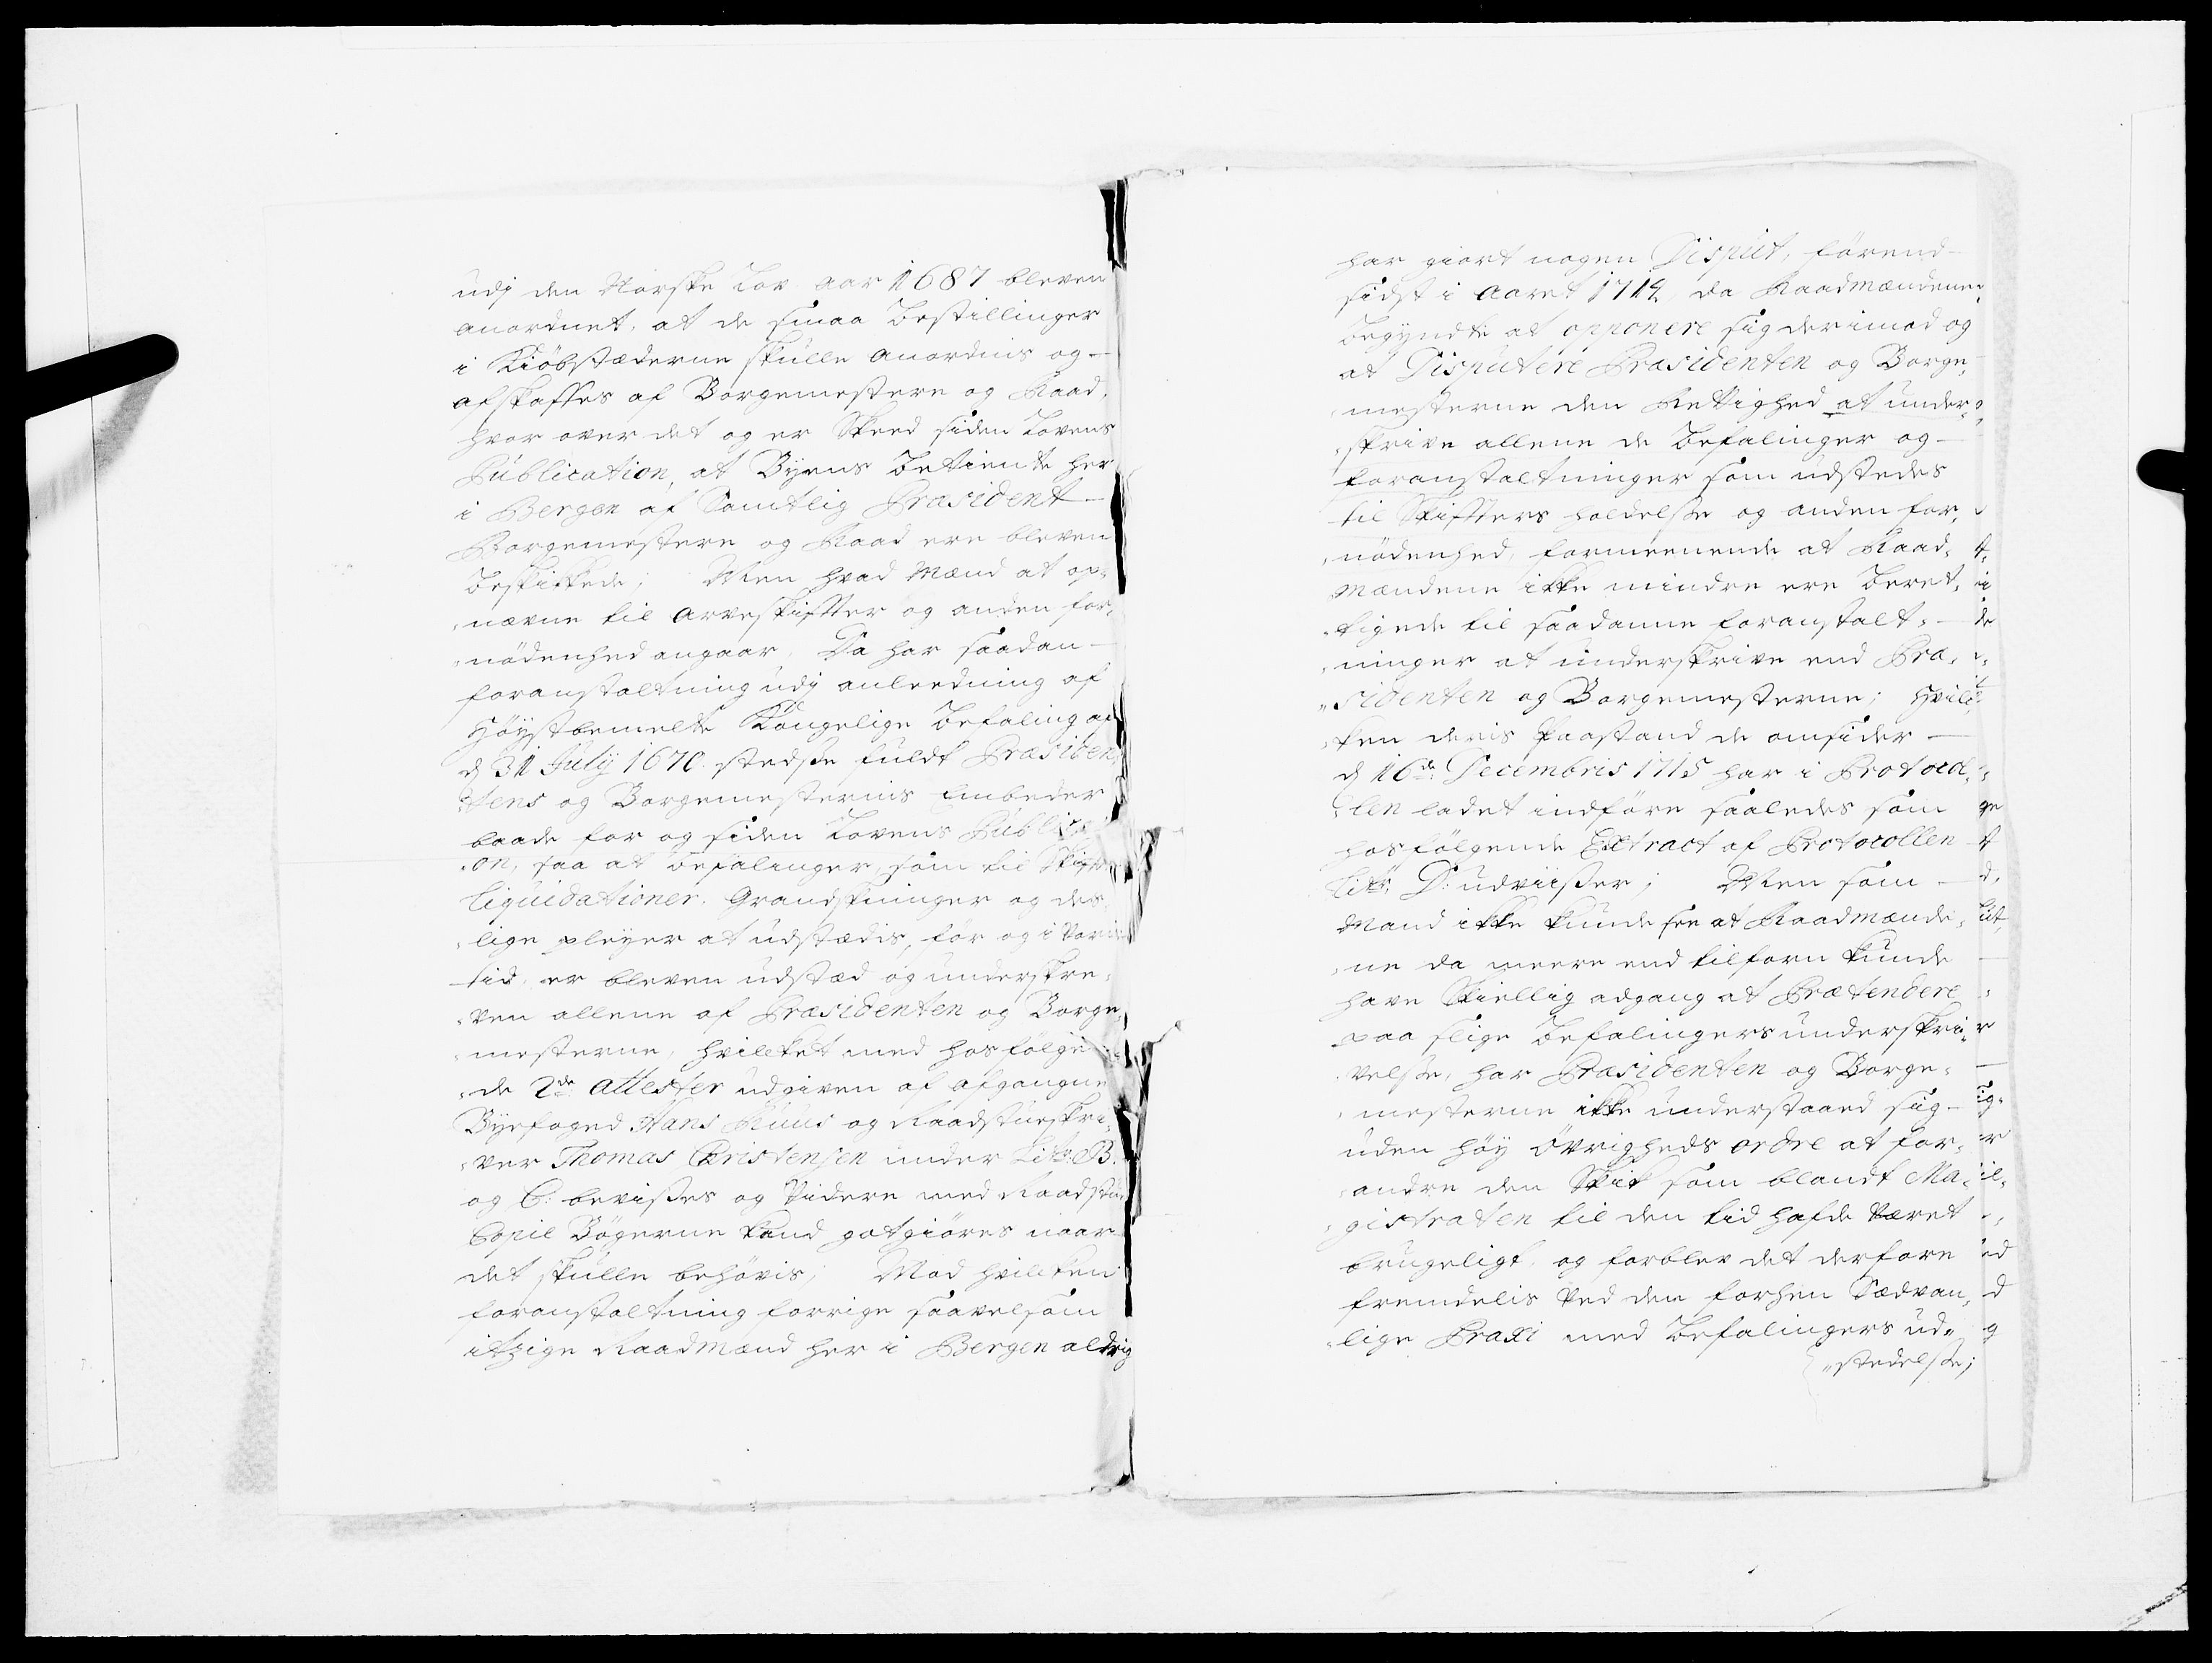 udj den Norske Lov aar 1687 bleven
anordnet, at de smaa Bestillinger
i Kiöbstæderne skulle anordnis og
afskaffes af Borgemestere og Raad,
hvor over det og er Skeed siden Lovens
Publication, at Byens Betiente her
i Bergen af Samtlig Præsident
Borgemestere og Raad ere bleven
beskikkede; Men hvad Mænd at op-
nævne til arveskiffter og anden for-
nödenhed angaar, Da har saadan
foranstaltning udj anleedning af
Höystbemelte Kongelige Befaling af
d 31 Julij 1670 stedse fuldt Præsiden-
tens og Borgemesternis Embeder
baade for og siden Lovens Publicati-
on, saa at befalinger, som til Skiffte
liquidationer, Grandskninger og des-
lige pleyer at udstædis, för og i voris
tid, er bleven udstæd og underskre-
ven allene af Præsidenten og Borge-
mesterne, hvilcket med hosfölgen-
de 2de attester udgiven af afgangne
Byefoged Hans Ruus og Raadstueskri-
ver Thomas Christensen under Litr: B.
og C: bevises og Videre med Raadstu-
Copie Bögerne kand gotgiöres naar
det skulle behövis; Mod hvilcken
foranstaltning forrige saavelsom
itzige Raadmænd her i Bergen aldrig
har giort nogen Disput, förend
sidst i aaret 1712, da Raadmændene
begyndte at opponere sig derimod og
at Disputere Præsidenten og Borge-
mesterne den Rettighed at under-
skrive allene de Befalinger og
foranstaltninger som udstedes
til Skiffters holdelse og anden for-
nödenhed, formeenende at Raad-
mændene ikke mindre ere beret-
tigede til saadanne foranstalt-
ninger at underskrive end Præ-
sidenten og Borgemesterne; Hvil-
ken deris Paastand de omsider
d 16de Decembris 1715 har i Protocol-
len ladet indföre saaledes som
hosfölgende Extract af Protocollen
Litr: D: udviiser; Men som
Mand ikke kunde see at Raadmænde-
ne da meere end tilforn kunde
have Skiellig adgang at Prætendere
paa slige Befalingers underskri-
velse, har Præsidenten og Borge-
mesterne ikke understaaed sig
uden höy övrigheds ordre at for-
andre den Skik som blandt Ma-
gistraten til den tid hafde været
brugeligt, og forblev det derfore
fremdelis ved den forhen Sædvan-
lige Praxi med Befalingers ud-
stedelse;